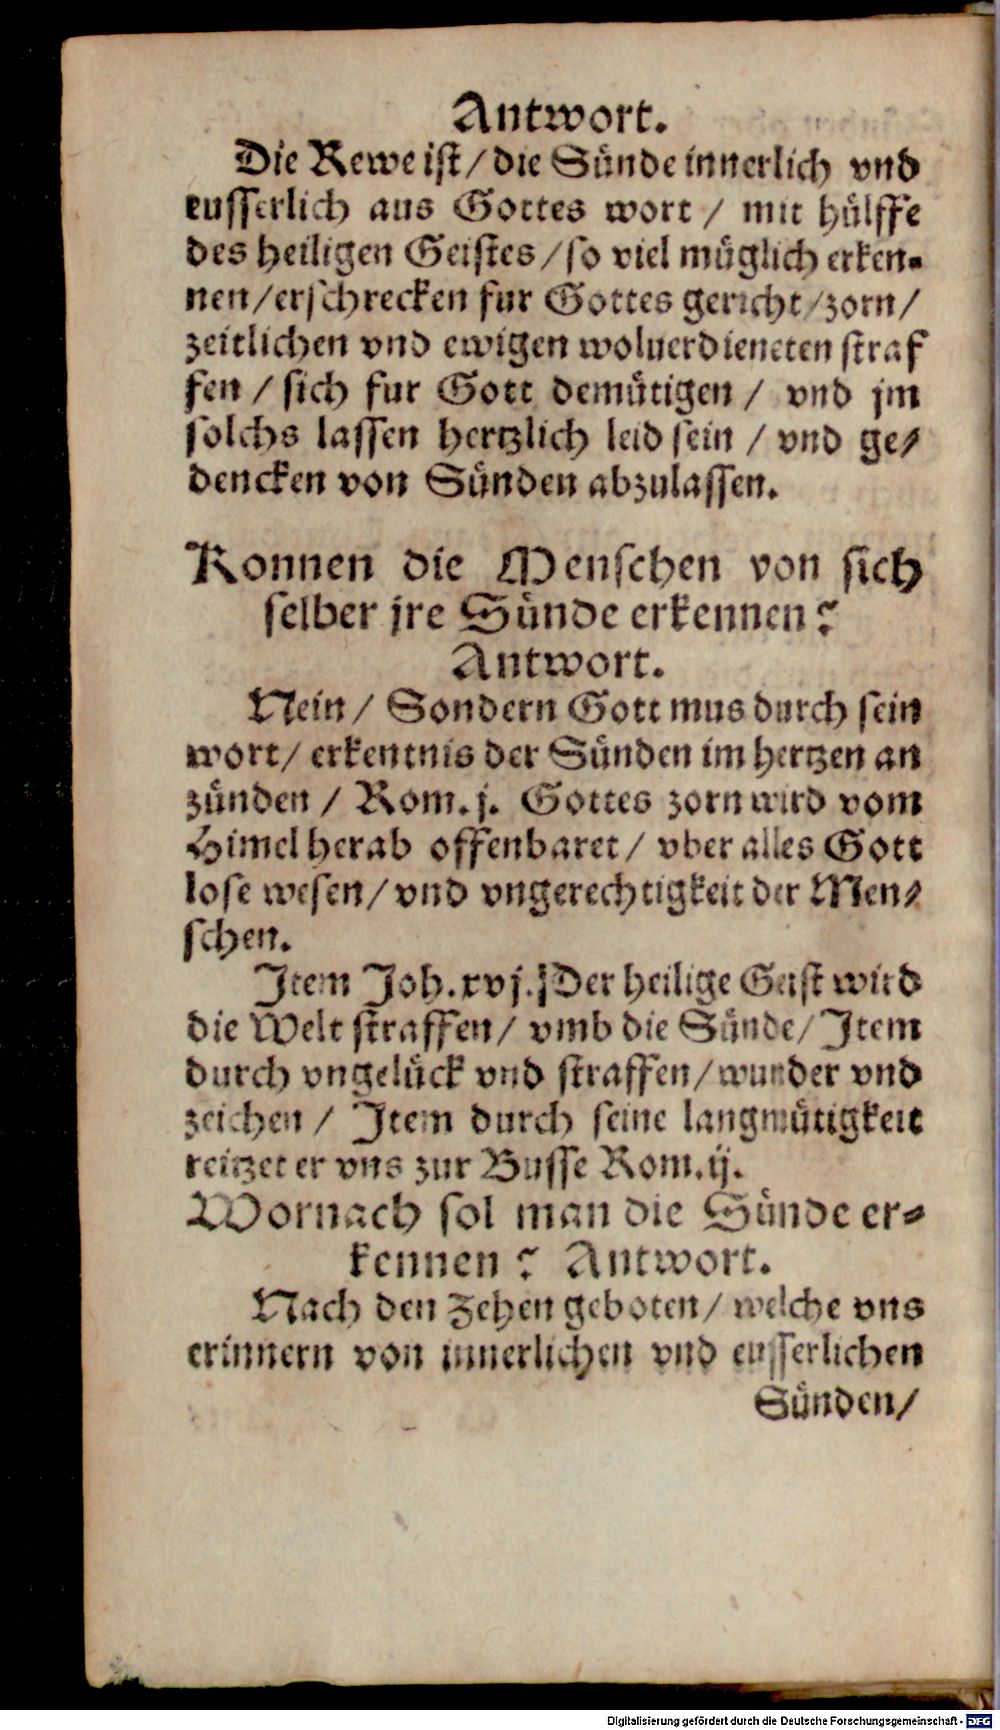 Antwort.
Die Rewe ist / die Sünde innerlich vnd
eusserlich aus Gottes wort / mit hülffe
des heiligen Geistes / so viel müglich erken-
nen / erschrecken fur Gottes gericht / zorn /
zeitlichen vnd ewigen woluerdieneten straf
fen / sich fur Gott demütigen / vnd jm
solchs lassen hertzlich leid sein / vnd ge-
dencken von Sünden abzulassen.
Konnen die Menschen von sich
selber jre Sünde erkennen?
Antwort.
Nein / Sondern Gott mus durch sein
wort / erkentnis der Sünden im hertzen an
zünden / Rom. j. Gottes zorn wird vom
Himel herab offenbaret / vber alles Gott
lose wesen / vnd vngerechtigkeit der Men-
schen.
Item Joh. xvj. Der heilige Geist wird
die Welt straffen / vmb die Sünde / Item
durch vngelück vnd straffen / wunder vnd
zeichen / Item durch seine langmütigkeit
reitzet er vns zur Busse Rom. ij.
Wornach sol man die Sünde er-
kennen? Antwort.
Nach den Zehen geboten / welche vns
erinnern von innerlichen vnd eusserlichen
Sünden /
Digitalisierung gefördert durch die Deutsche Forschungsgemeinschaft - DFG